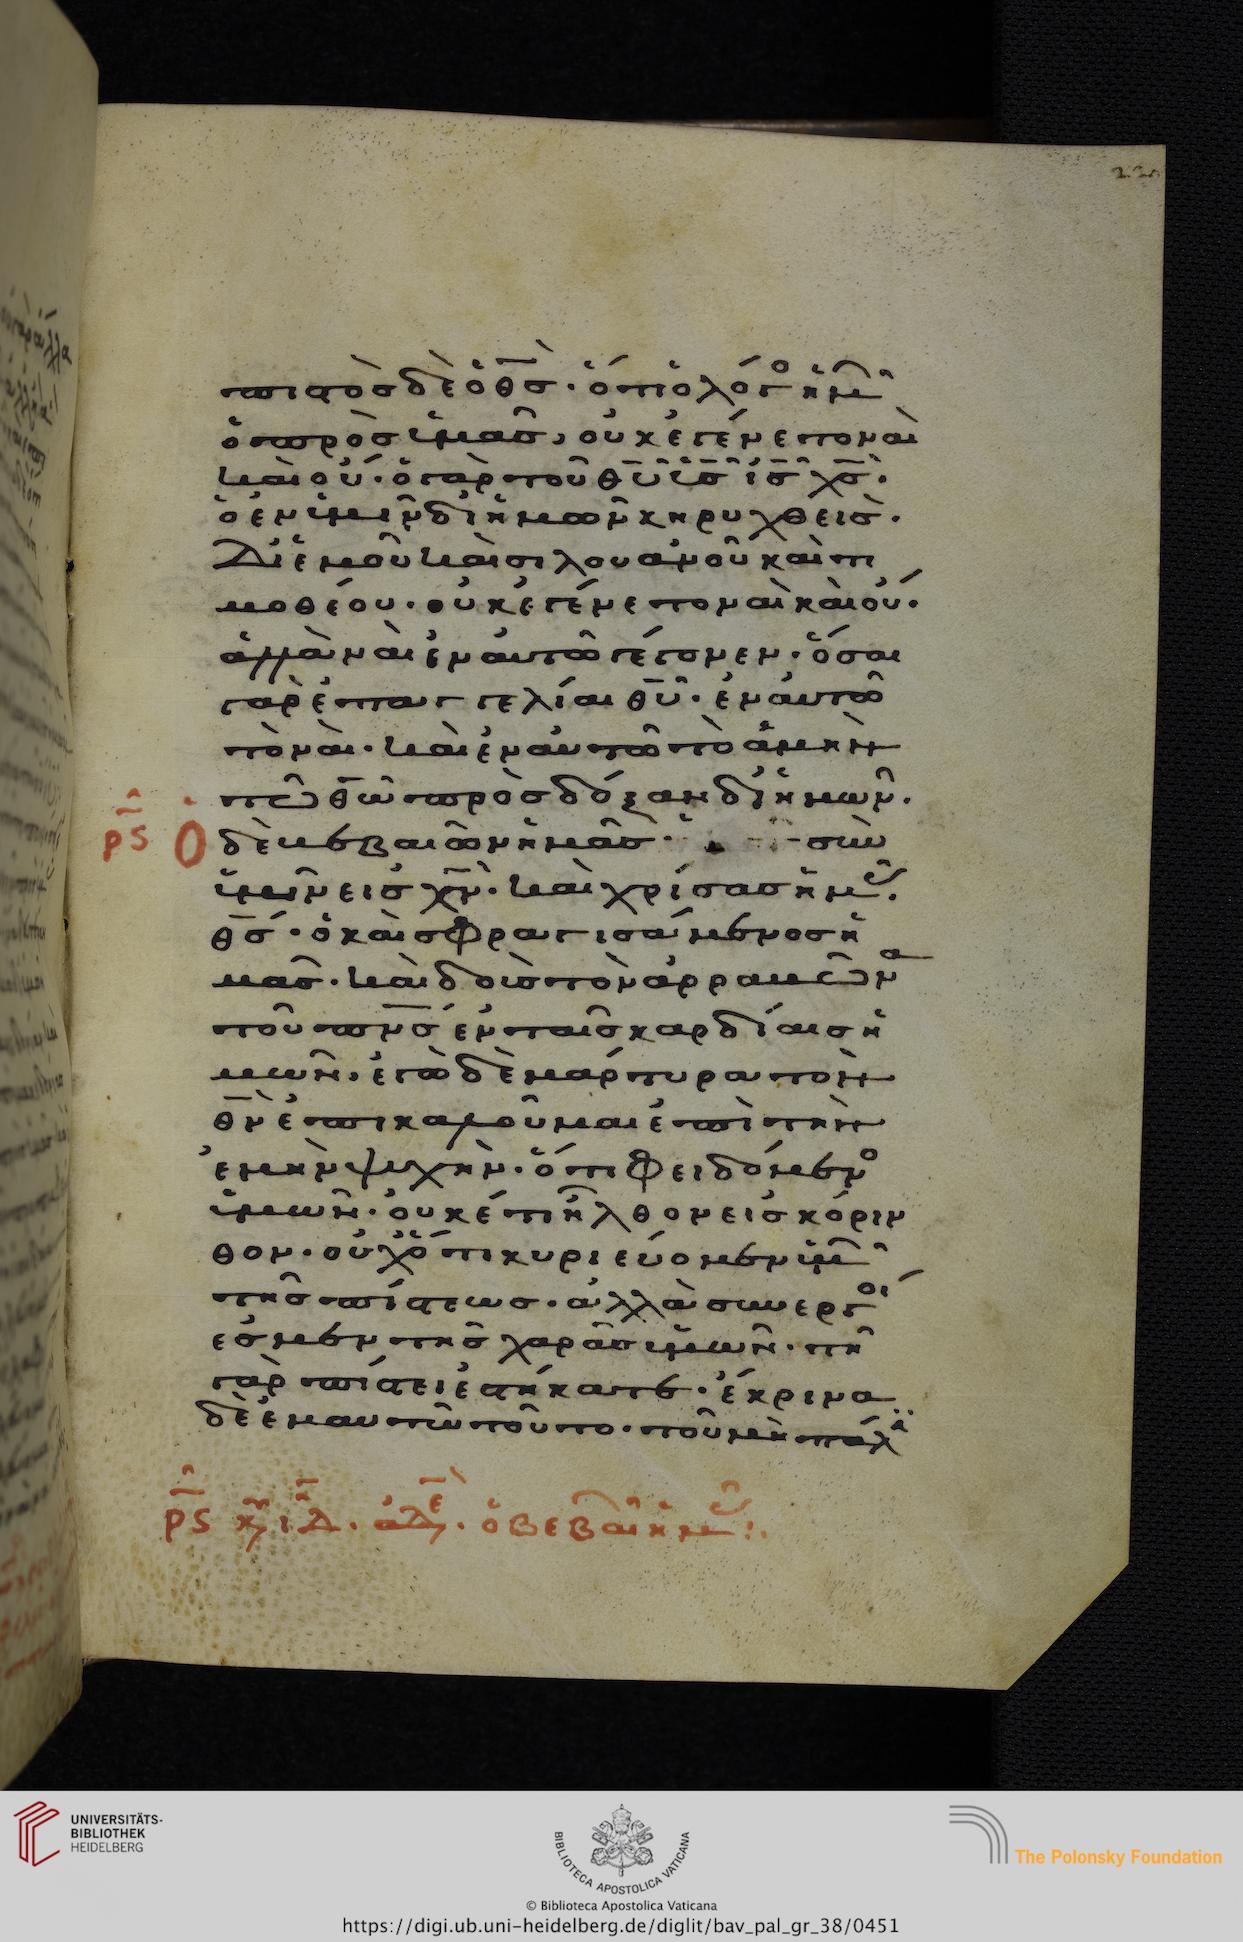 πιστὸς δὲ ὁ θ̅ς̅· ὅτι ὁ λόγο ἡμ
ὁ πρὸς ὑμᾶς, οὐκ ἐγένετο ναὶ
καὶ οὔ· ὁ γὰρ τοῦ θ̅υ̅ υ̅ς̅ ι̅ς̅ χ̅ς̅·
ὁ ἐν ὑμῖν δι ἡμῶν κηρυχθεὶς·
Δι ἐμοῦ καὶ σιλουανοῦ καὶ τι
μοθέου· οὐκ ἐγένετο ναὶ καὶ οὔ·
ἀλλὰ ναὶ ἐν αὐτῶ γέγονεν· ὅσαι
γὰρ ἐπαγγελίαι θ̅υ̅· ἐν αὐτῶ
τὸ ναὶ· καὶ ἐν αὐτῶ τὸ ἀμὴν
τῶ θ̅ω̅ πρὸς δόξαν δι ἡμῶν·
ρ̅ϛ̅ Ὁ δὲ βεβαιῶν ἡμᾶς· σὺν
ὑμῖν εἰς χ̅ν̅· καὶ χρίσας ἡμ·
θ̅ς̅· ὁ καὶ σφραγισάμενος ἡ
μᾶς· καὶ δοὺς τὸν ἀρραβῶνα
τοῦ π̅ν̅ς̅ ἐν ταῖς καρδίαις ἡ
μῶν· ἐγὼ δὲ μάρτυρα τὸν
θ̅ν̅ ἐπικαλοῦμαι ἐπὶ τὴν
ἐμὴν ψυχὴν· ὅτι φειδόμενο
ὑμῶν· οὐκέτι ἦλθον εἰς κόριν
θον· οὐχ ὅτι κυριεύομεν ὑμ
τῆς πίστεως· ἀλλὰ συνεργοί
ἐσμεν τῆς χαρᾶς ὑμῶν· τῆ
γὰρ πίστει ἑστήκατε· ἔκρινα
δὲ ἐμαυτῶ τοῦτο· τοῦ μὴ πάλ
ρ̅ϛ̅ ὁ βεβαι ἡμ
UNIVERSITÄTS-
BIBLIOTHEK
HEIDELBERG
BIBLIOTECA APOSTOLICA VATICANA
The Polonsky Foundation
© Biblioteca Apostolica Vaticana
https://digi.ub.uni-heidelberg.de/diglit/bav_pal_gr_38/0451